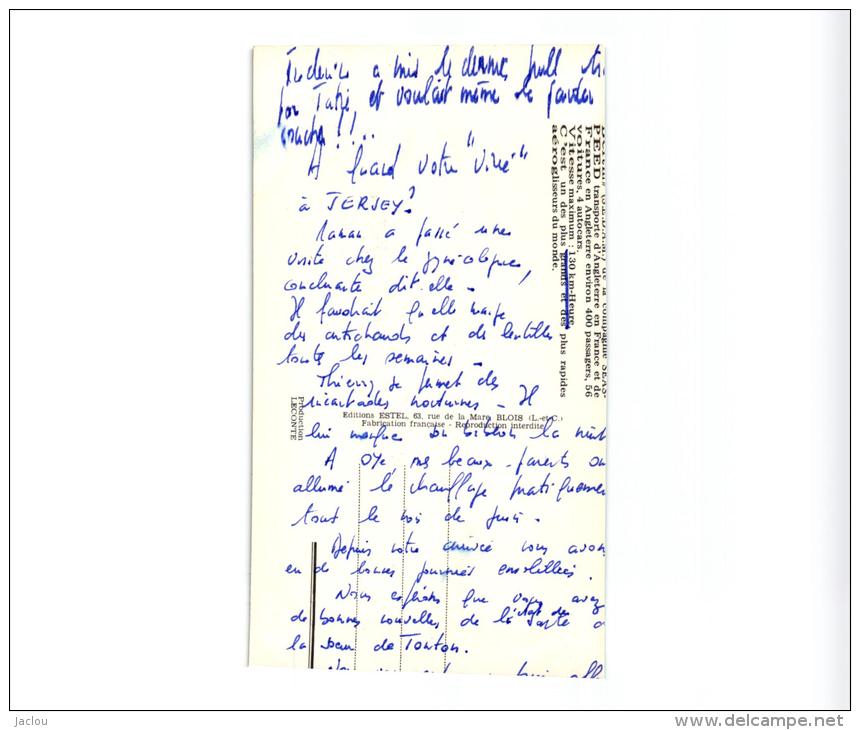 Frédéric a mis le dernier pull
par Tatie, et voulait même se
coucher !!...
A quand votre "virée"
à JERSEY?
Maman a passé une
visite chez le gynécologue,
concluante dit-elle -
Il faudrait qu'elle mange
des artichauts et des lentilles
toutes les semaines -
Thierry se permet des
incartades nocturnes - Il
lui manque son biberon la nuit
A OYE, mes beaux-parents on
allumé le chauffage pratiquemen
tout le mois de juin -
Depuis votre arrivée nous avons
eu de bonnes journées ensoleillées.
Nous espérons que vous avez
de bonnes nouvelles de l'état de santé
la soeur de Tonton.
de la compagnie SEAS-
PEED transporte d'Angleterre en France et de
France en Angleterre environ 400 passagers, 56
voitures, 4 autocars.
Vitesse maximum : 130 km-Heure
C'est un des plus grands et des plus rapides
aéroglisseurs du monde.
Production
LECONTE
Editions ESTEL, 63, rue de la Mare BLOIS (L.-et-C.)
Fabrication française - Reproduction interdite
Jaclou
www.delcampe.net